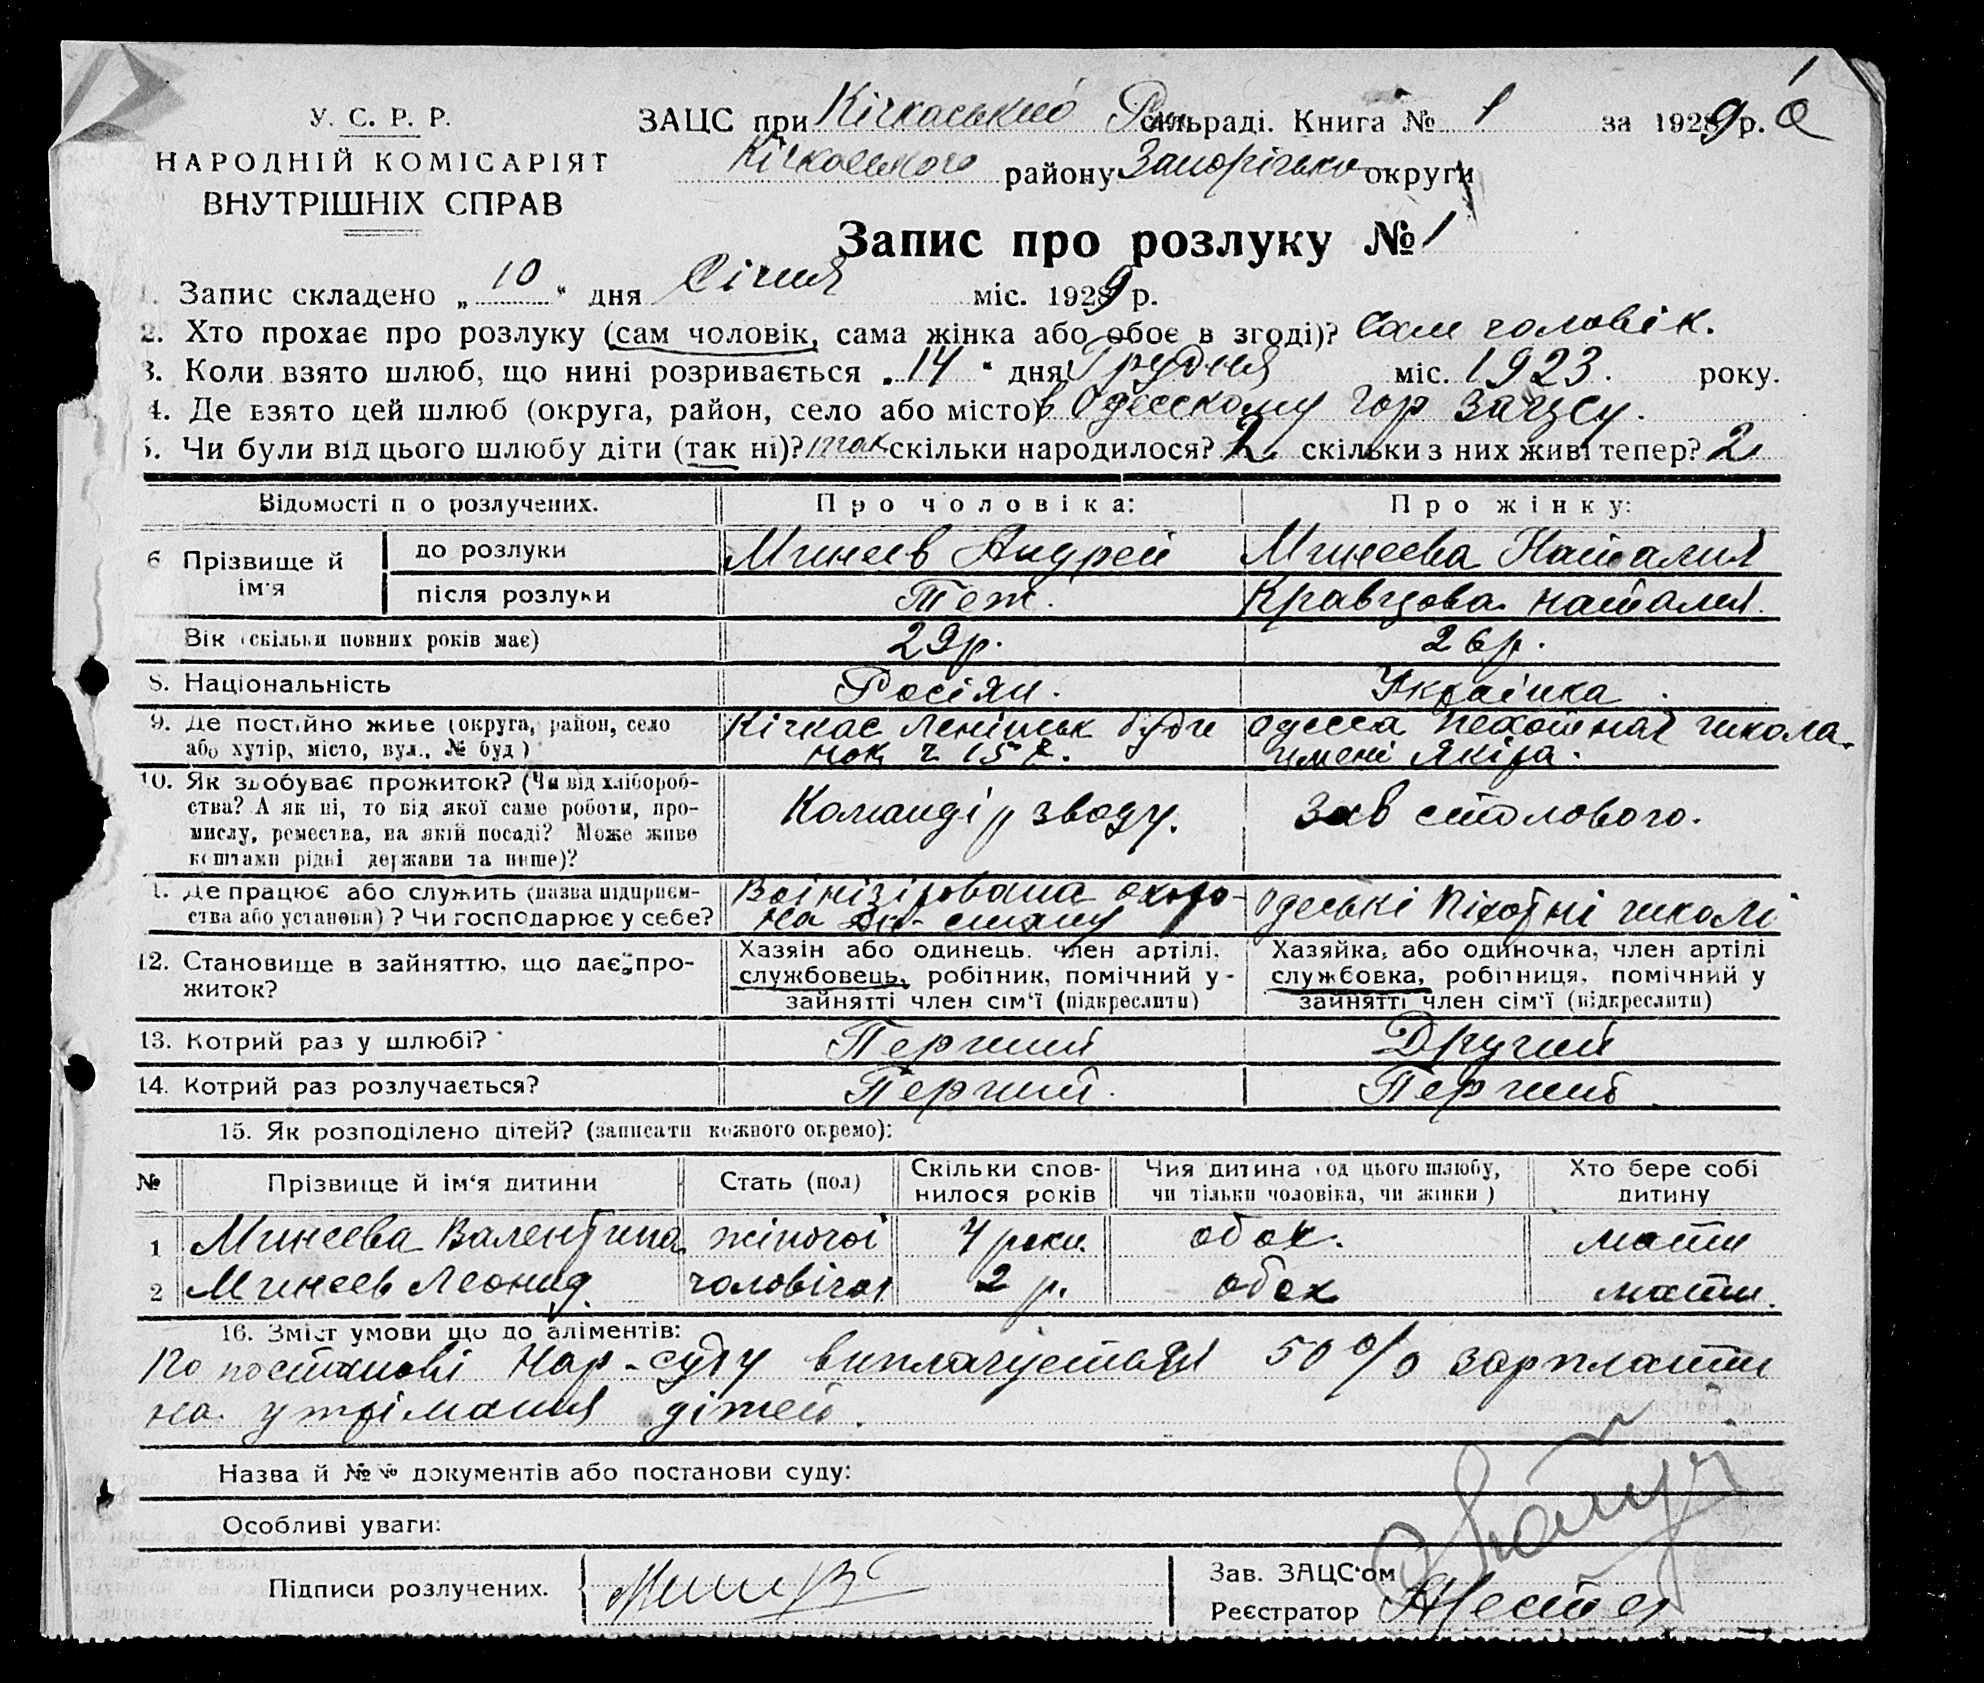 У. С. Р. Р.
НАРОДНІЙ КОМІСАРІЯТ
ВНУТРІШНІХ СПРАВ
ЗАЦС при Кічкаській сільраді. Книга № 1 за 1929 р.
Кічкаського району Запорізько округи
Запис про розлуку № 1
1. Запис складено „10“ дня Січня міс. 1929 р.
2. Хто прохає про розлуку (сам чоловік, сама жінка або обоє в згоді)? Сам чоловік.
3. Коли взято шлюб, що нині розривається „14“ дня Грудня міс. 1923. року.
4. Де взято цей шлюб (округа, район, село або місто)? в Одесскому гор загцсу.
5. Чи були від цього шлюбу діти (так ні)? так скільки народилося? 2 скільки з них живі тепер? 2
Відомості п о розлучених. Про чоловіка: Про жінку:
6 Прізвище й ім'я до розлуки Минеев Андрей Минеева Наталия
після розлуки Теж. Кравцова Наталия.
7. Вік (скільки повних років має) 29 р. 26 р.
8. Національність Росіян. Українка.
9. Де постійно живе (округа, район, село Кічкас Ленінськ буди Одесса Пехотная школа
або хутір, місто, вул., № буд) нок ч 15 имені Якіра.
10. Як здобуває прожиток? (Чи від хлібороб-
ства? А як ні, то від якої саме роботи, про- Командір зводу. Зав столового.
мислу, ремества, на якій посаді? Може живе
коштами рідні держави та инше)?
11. Де працює або служить (назва підприєм- Воінізірована охоро- Одеські Піхотні школі
ства або установи)? Чи господарює у себе? на
12. Становище в зайняттю, що дає про-
житок?
Хазяїн або одинець, член артілі,
службовець, робітник, помічний у
зайнятті член сім'ї (підкреслити)
Хазяйка, або одиночка, член артілі
службовка, робітниця, помічний у
зайнятті член сім'ї (підкреслити)
13. Котрий раз у шлюбі? Перший Другий
14. Котрий раз розлучається? Перший. Перший.
15. Як розподілено дітей? (записати кожного окремо):
№ Прізвище й ім'я дитини Стать (пол) Скільки спов- Чия дитина (од цього шлюбу, Хто бере собі
нилося років чи тільки чоловіка, чи жінки) дитину
1 Минеева Валентина жіночої 4 роки. обох. мати
2 Минеев Леонид. чоловічої 2 р. обох мати.
16. Зміст умови що до аліментів:
По постанові Нар-суду виплачуеться 50% зарплати
на утрімання дітей.
Назва й №№ документів або постанови суду:
Особливі уваги:
Підписи розлучених.
Зав. ЗАЦС'ом
Реєстратор